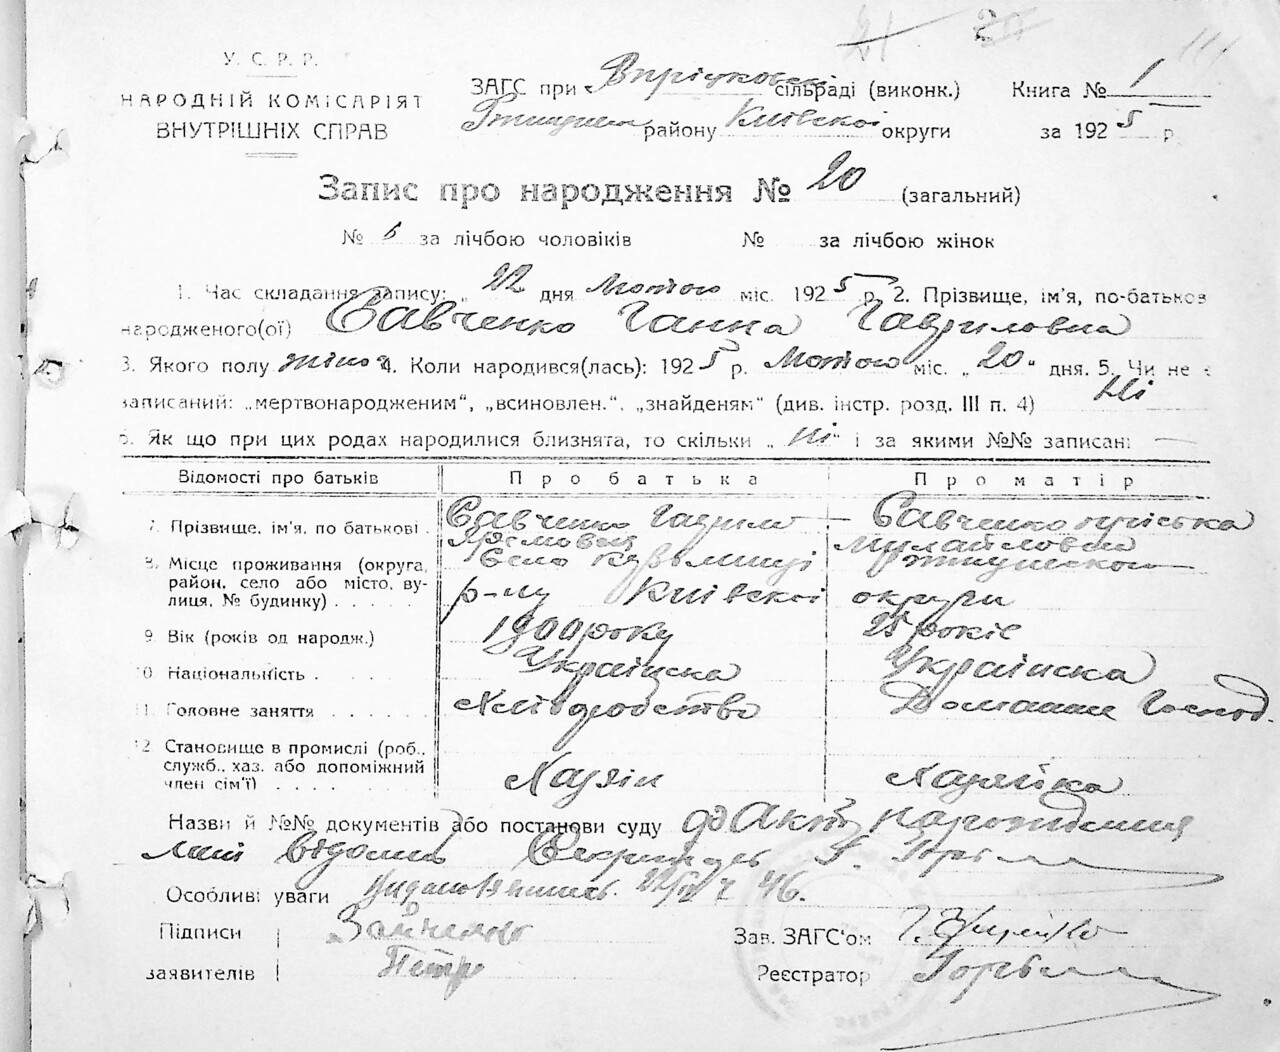 У. С. Р. Р.
НАРОДНІЙ КОМІСАРІЯТ
ВНУТРІШНІХ СПРАВ
ЗАГС при сільраді (виконк.) Книга № 1
району Київської округи за 1925 р.
Запис про народження № 20 (загальний)
№ за лічбою чоловіків № за лічбою жінок
1. Час складання запису: „ 22 дня Лютого міс. 1925 р. 2. Прізвище, ім'я, по-батькові
народженого(ої) Савченко Ганна Гавриловна
3. Якого полу жіноч 4. Коли народився(лась): 1925 р. Лютого міс. „ 20 " дня. 5. Чи не є
записаний: „мертвонародженим", „всиновлен.", „знайденям" (див. інстр. розд. III п. 4) Ні
6. Як що при цих родах народилися близнята, то скільки „ Ні " і за якими №№ записані —
Відомості про батьків Про батька Про матір
7. Прізвище, ім'я, по батькові . Савченко Гаврило — Савченко Пріська
Михайловна
8. Місце проживання (округа, Село
район, село або місто, ву-
лиця, № будинку) . . . . . р-ну Київскої округи
9. Вік (років од народж.) 1900 року 25 років
10. Національність . . . . . . Українска Українска
11. Головне заняття . . . . . . Хліборобство Домашнє Господ.
12. Становище в промислі (роб.,
служб., хаз. або допоміжний
член сім'ї) . . . . . . . Хазяїн Хазяйка
Назви й №№ документів або постанови суду Акт народження
відомий Секретарь
Особливі уваги
Підписи
Зав. ЗАГС'ом
заявителів Петр Реєстратор